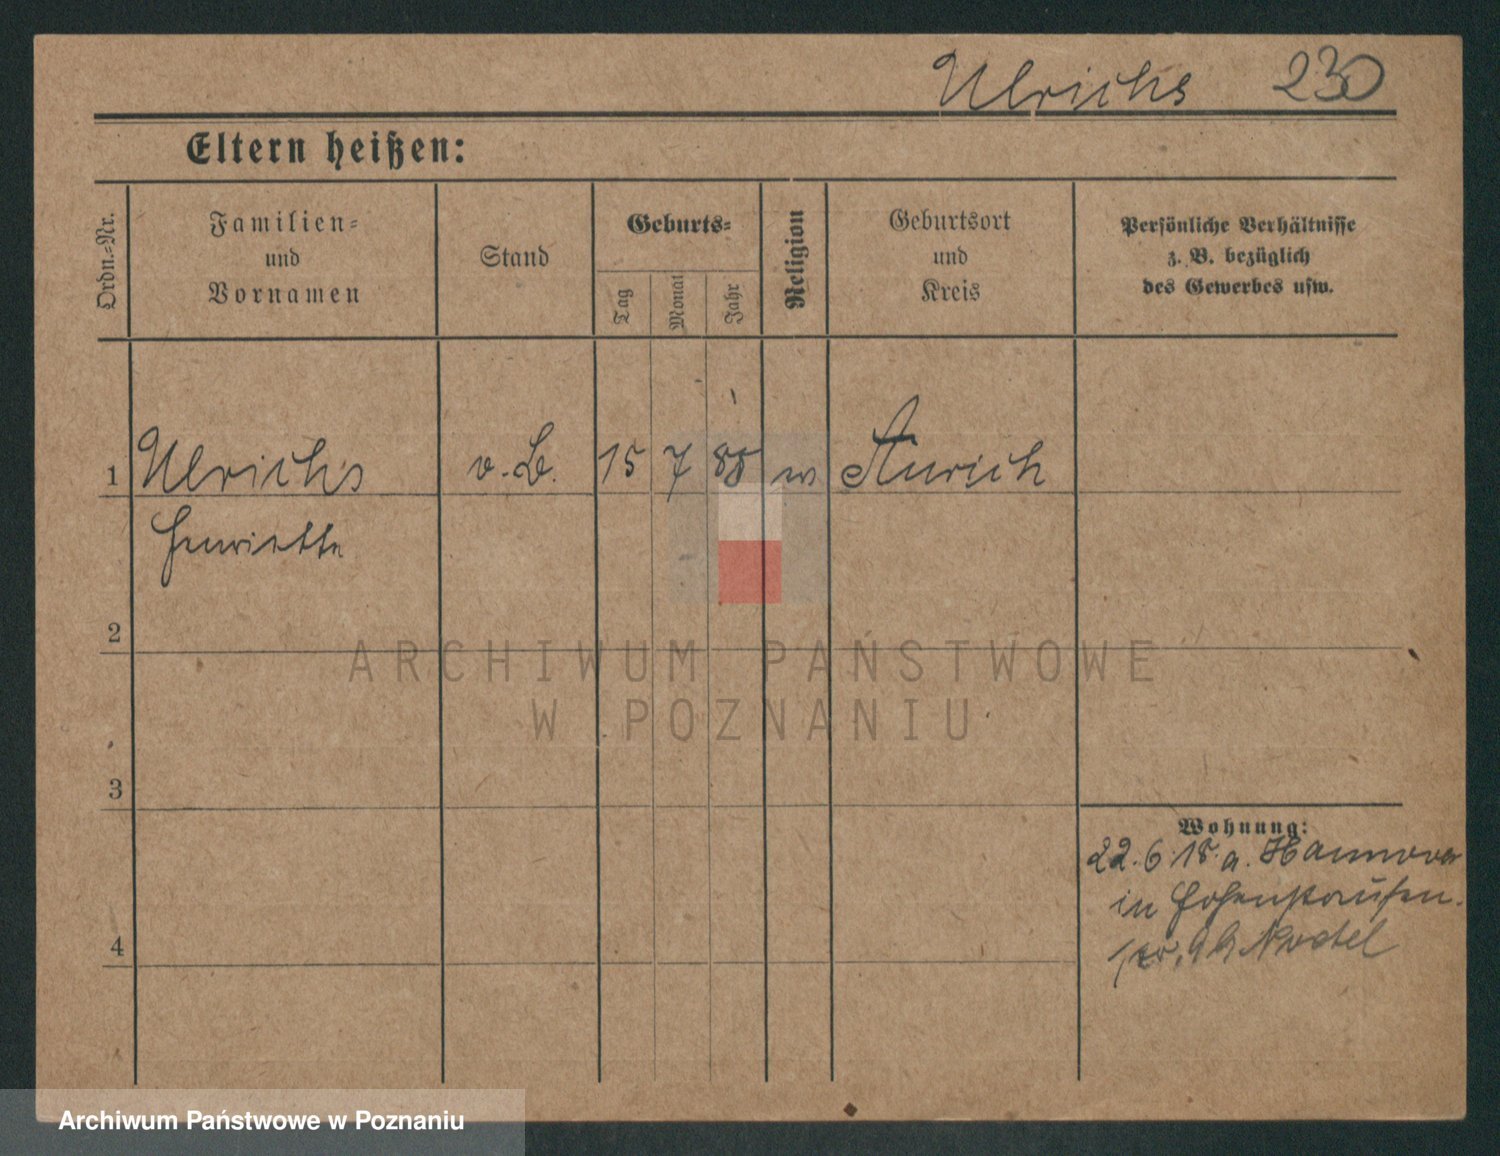 Ulrichs 230
Eltern heißen:
Ordn.-Nr.
Familien-
und
Vornamen
Stand
Geburts-
Tag
Monat
Jahr
Religion
Geburtsort
und
Kreis
Persönliche Verhältnisse
z. B. bezüglich
des Gewerbes usw.
1 Ulrichs v. B. 15 7 88 Aurich
Henriette
2
3
4
Wohnung:
22.6.18. a. Hannover
in Hohenstaufen.
ARCHIWUM PAŃSTWOWE
W POZNANIU
Archiwum Państwowe w Poznaniu